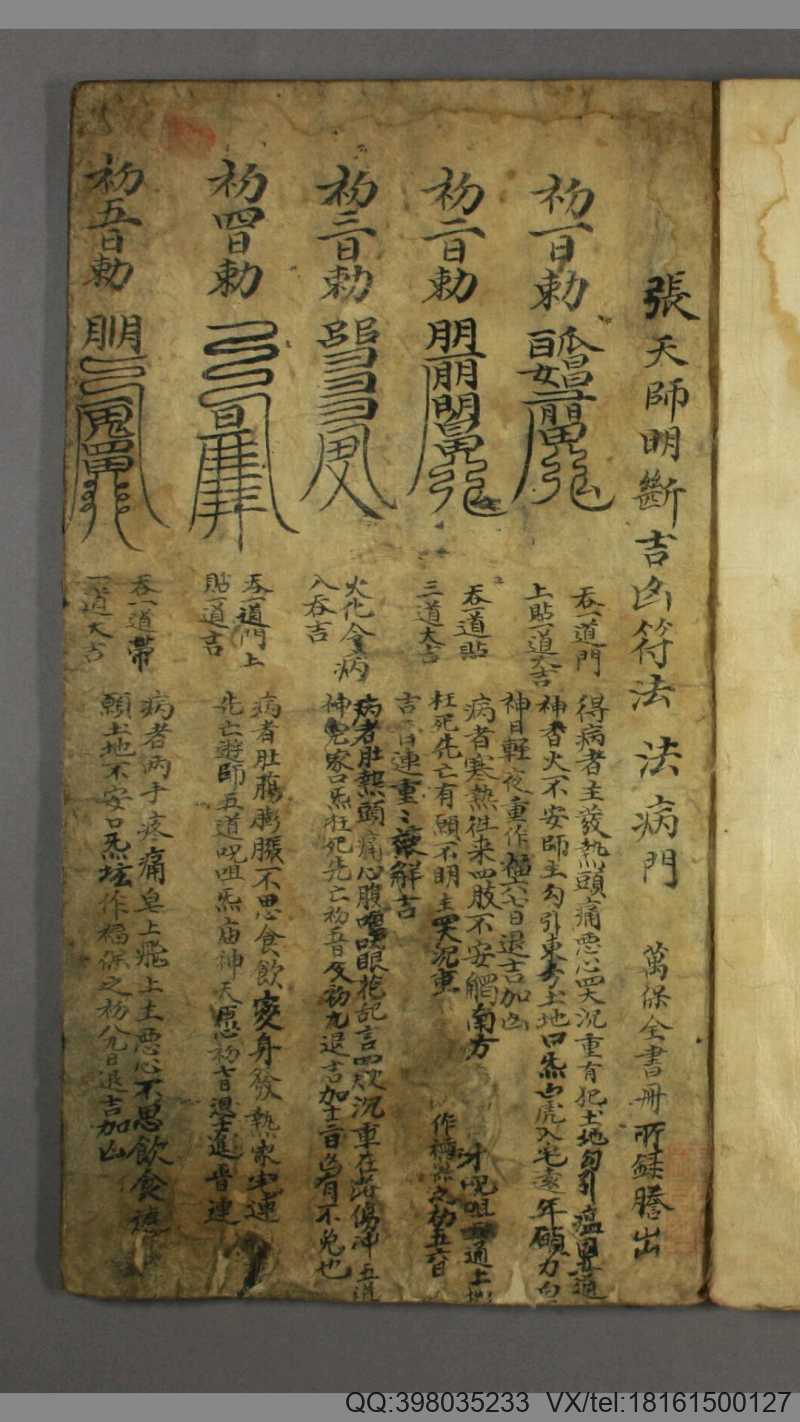 張天師明斷吉凶符法 法病門 萬保全書冊所錄謄出
初一日勅
吞一道門
上貼一道大吉
得病者主發熱頭痛惡心四大沉重有犯土地勾引瘟
神香火不安師主勾引東方土地口炁白虎入宅遠年願
神日輕夜重作福六七日退吉加凶
初二日勅
吞一道貼
三道大吉
病者寒熱往来四肢不安觸南方 咒咀 通土地
枉死先亡有願不明主四大沉重 作福保之初五六日
吉 日連重重藥解吉
初三日勅
火化令病
人吞吉
病者肚熱頭痛心腹 眼 記言四肢沉重在路傷冲五道
神冤家口炁枉死先亡初五日及初九退吉加 不免也
初四日勅
吞一道門上
貼一道吉
病者肚腸膨脹不思食飲変身發熱家 連
先亡遊師五道咒咀炁庙神天 初 日退 連
初五日勅
吞一道带
一道大吉
病者两手疼痛皂上飛上土惡心不思飲食
願土地不安口炁坛作福保之初八九日退吉加凶
QQ:398035233 VX/tel:18161500127